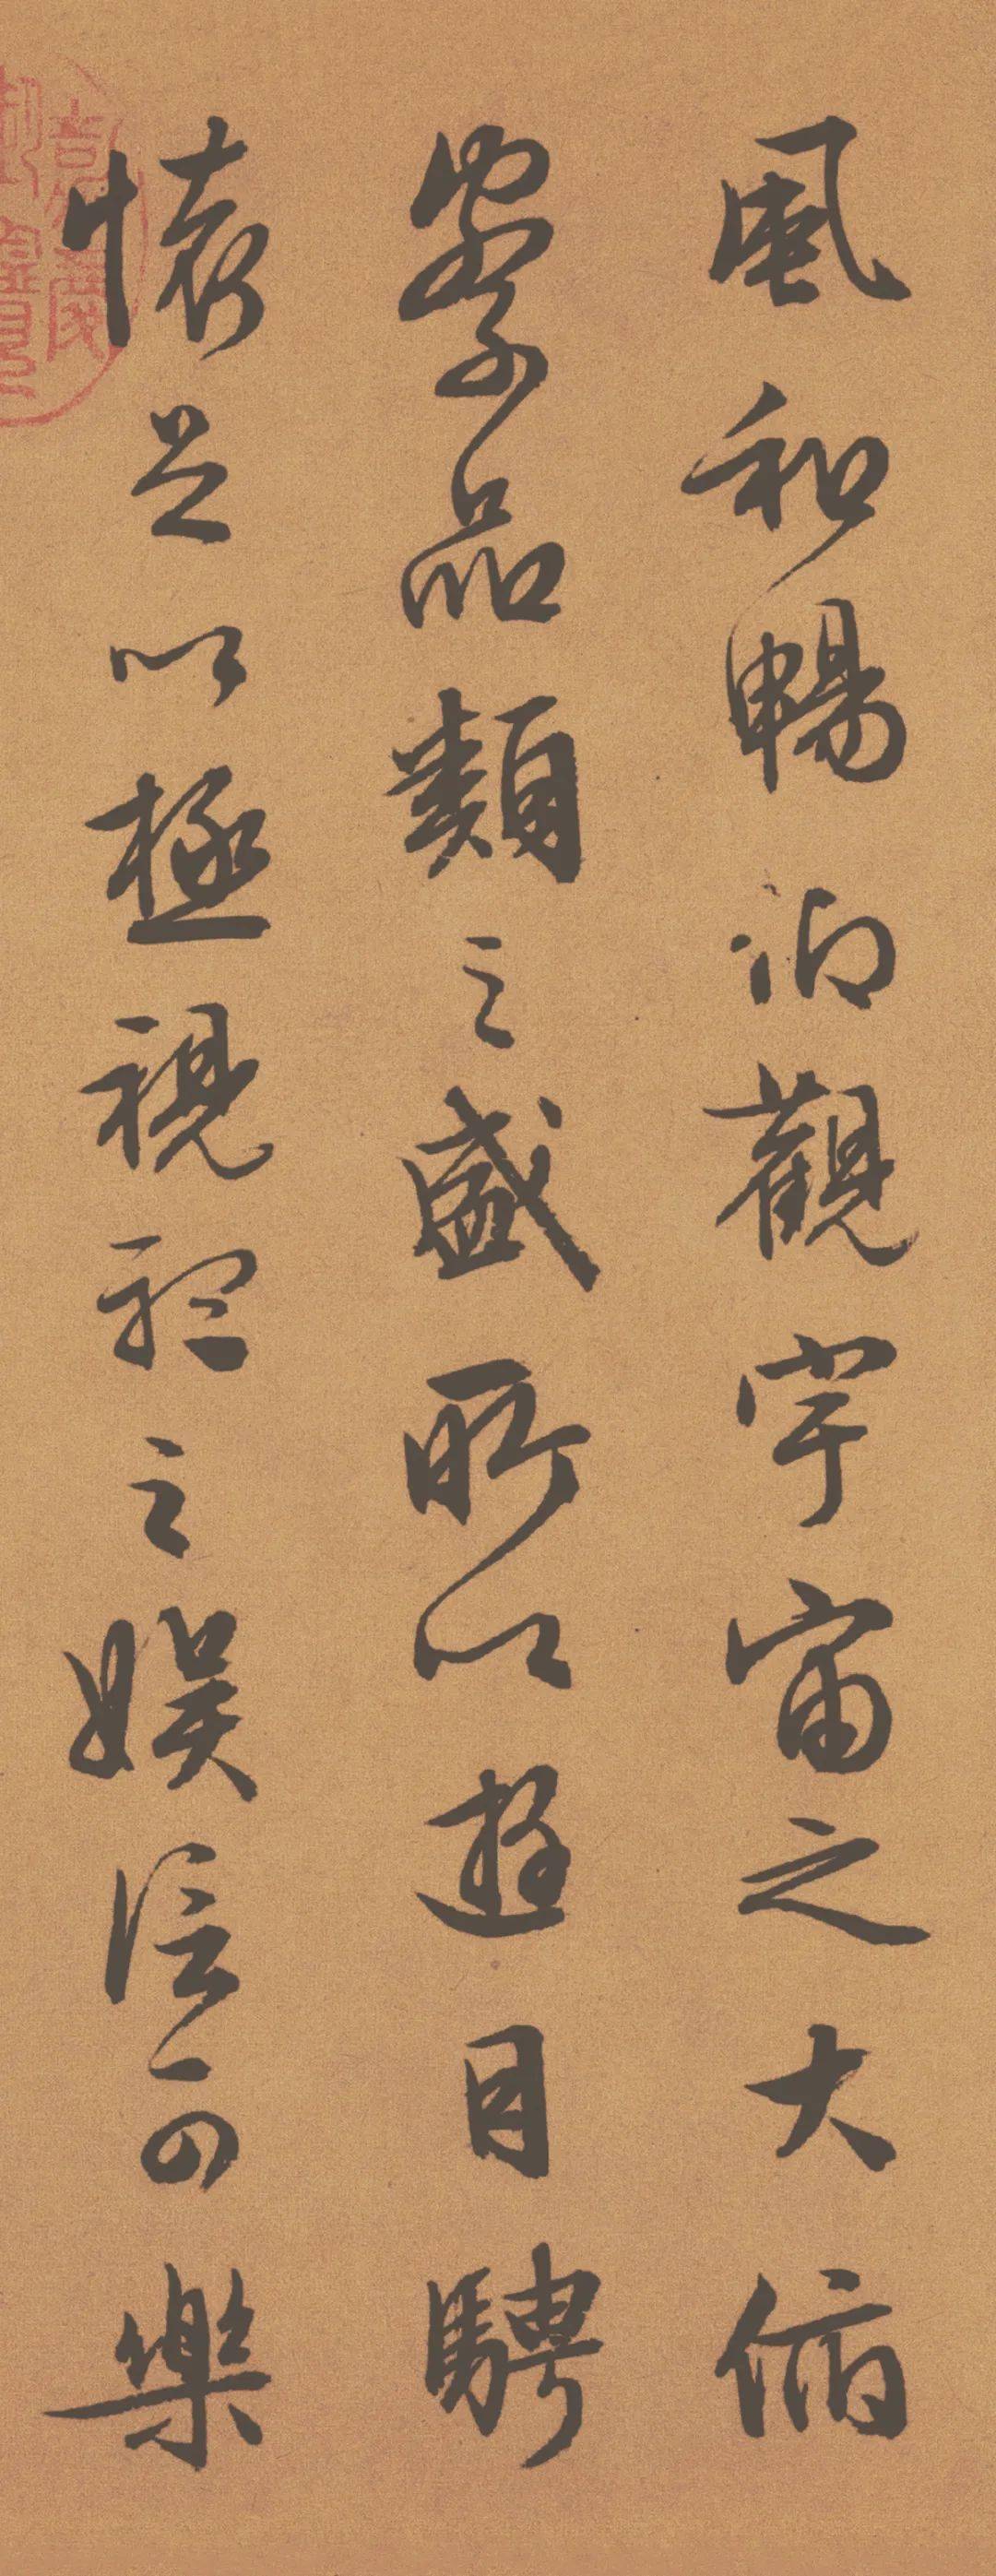 風和暢仰觀宇宙之大俯
察品類之盛所以遊目騁
懷足以極視聽之娛信可樂